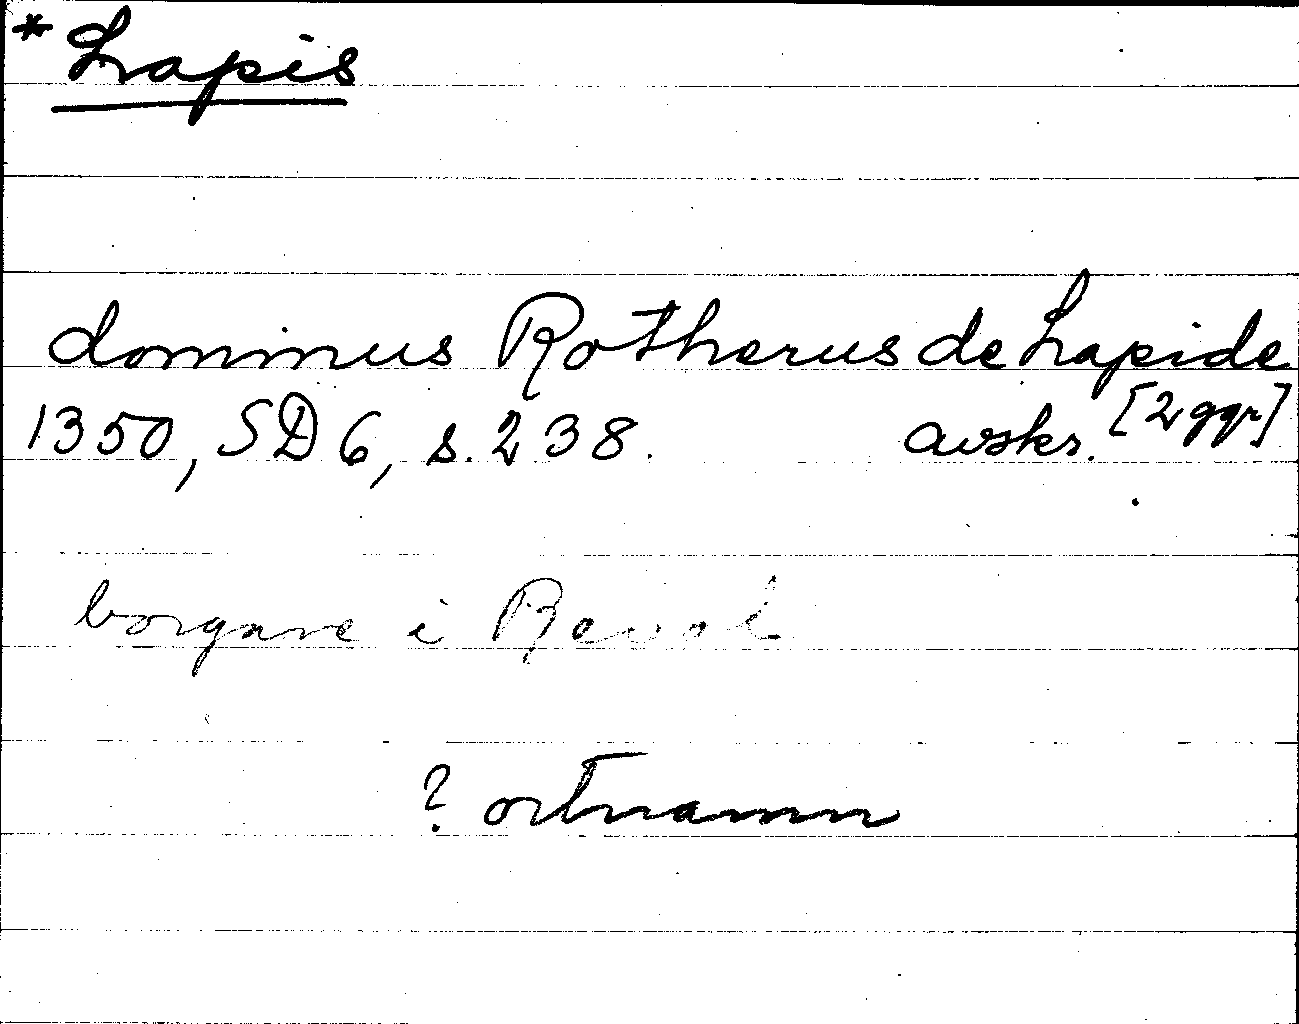 * Lapis
dominus Rotherus de Lapide
1350, SD 6, s. 238. avskr. [2 ggr]
borgare i Reval
? ortnamn